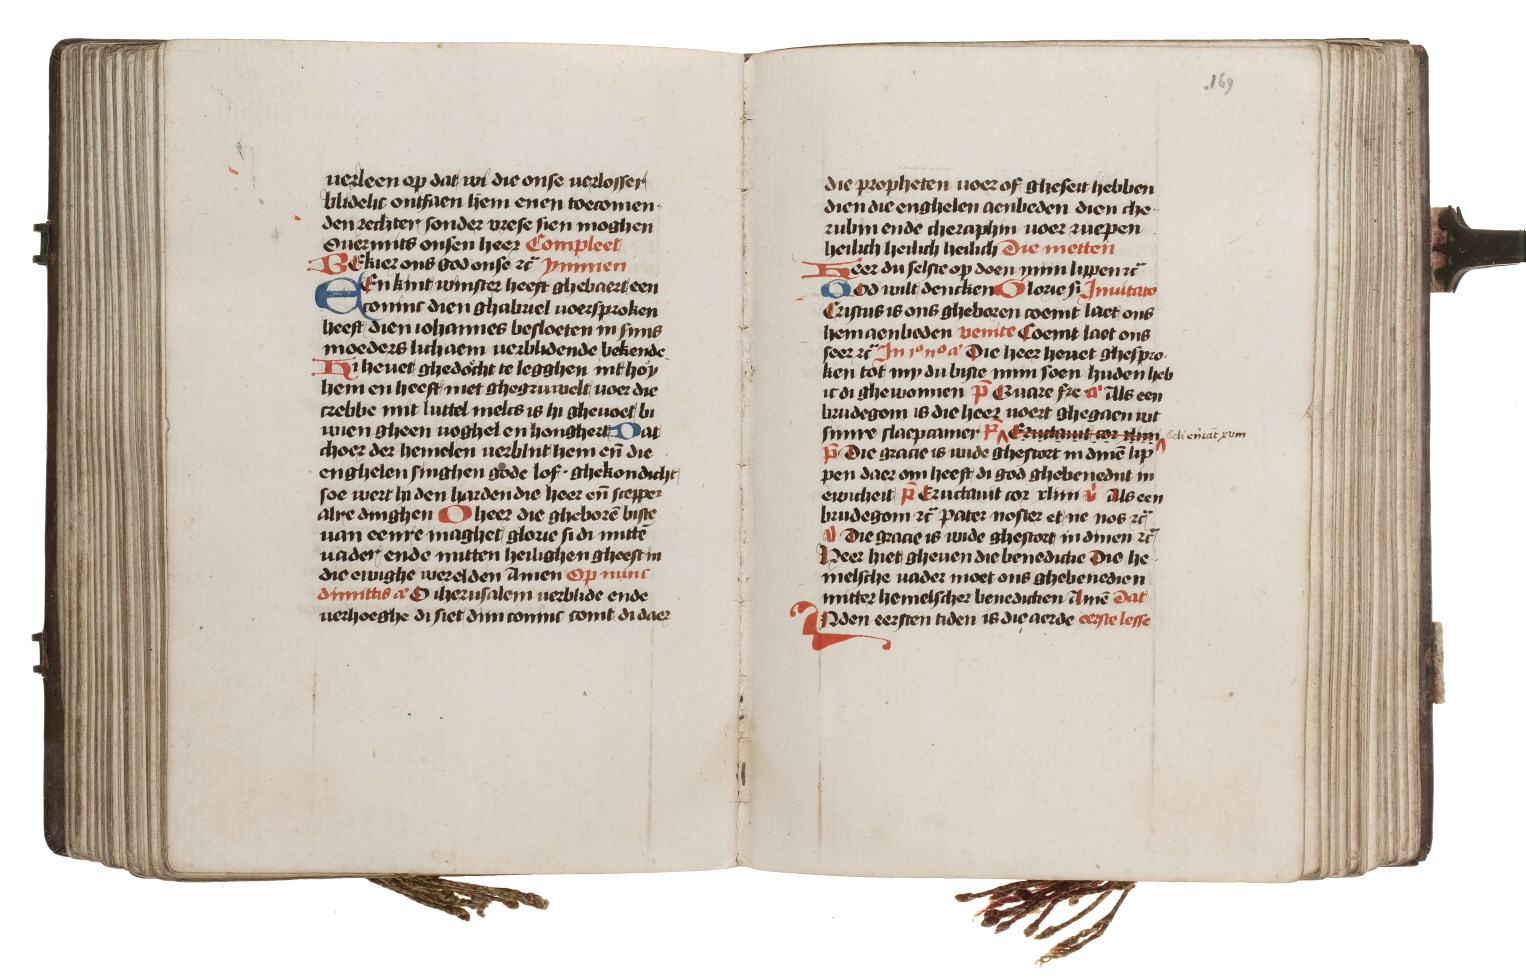 verleen op dat wi die onse verlosser
blidelic ontfaen hem enen toecomen-
den rechter sonder vrese sien moghen
Overmits onsen heer Compleet
BEkier ons god onse rc̄ ymmen
EEn kint winster heeft ghebaert een
cominc dien ghabriel voersproken
heeft dien iohannes besloeten in sinis
moeders lichaem verblidende bekende
Hi hevet ghedocht te legghen int hoy
hem en heeft niet ghegruwelt voer die
crebbe mit luttel melcs is hi ghevoet bi
wien gheen voghel en honghert Dat
choer der hemelen verblint hem en̄ die
enghelen singhen gode lof ghekondicht
soe wert hi den harden die heer en̄ scepper
alre dinghen O heer die gheborē biste
van eenre maghet glorie si di mittē
vader ende mitten heilighen gheest in
die ewighe werelden Amen Op nunc
dimittis a᷒ O iherusalem verblide ende
verhoeghe di siet dijn coninc comt di daer
.169
die propheten voer of gheseit hebben
dien die enghelen aenbeden dien che-
rubin ende cheraphin voer ruepen
heilich heilich heilich Die metten
Heer du selste op doen minn lippen rc̄
God wilt dencken Glorie si Invitato
Cristus is ons gheboren coemt laet ons
hem aenbeden venite Coemt laet ons
seer rc̄ In 1º nº a᷒ Die heer hevet ghespro-
ken tot my du biste mijn soen huden heb
ic di ghewonnen p̄ Quare fre a᷒ Als een
brudegom is die heer voert ghegaen wt
sinre slaepcamer p̄ Eructavit cor xliiii Celi enar̄at xviii
p̄ Die gracie is wide ghestort in dinē lip
pen daer om heeft di god ghebenedijt in
ewicheit p̄ Eructavit cor xliiii v̇ Als een
brudegom rc̄ pater noster et ne nos rc̄
v̇ Die gracie is wide ghestort in dinen rc̄
Heer hiet gheven die benedictie Die he-
melsche vader moet ons ghebenedien
mitter hemelscher benedictien Amē dat
INden eersten tiden is die aerde eerste lesse